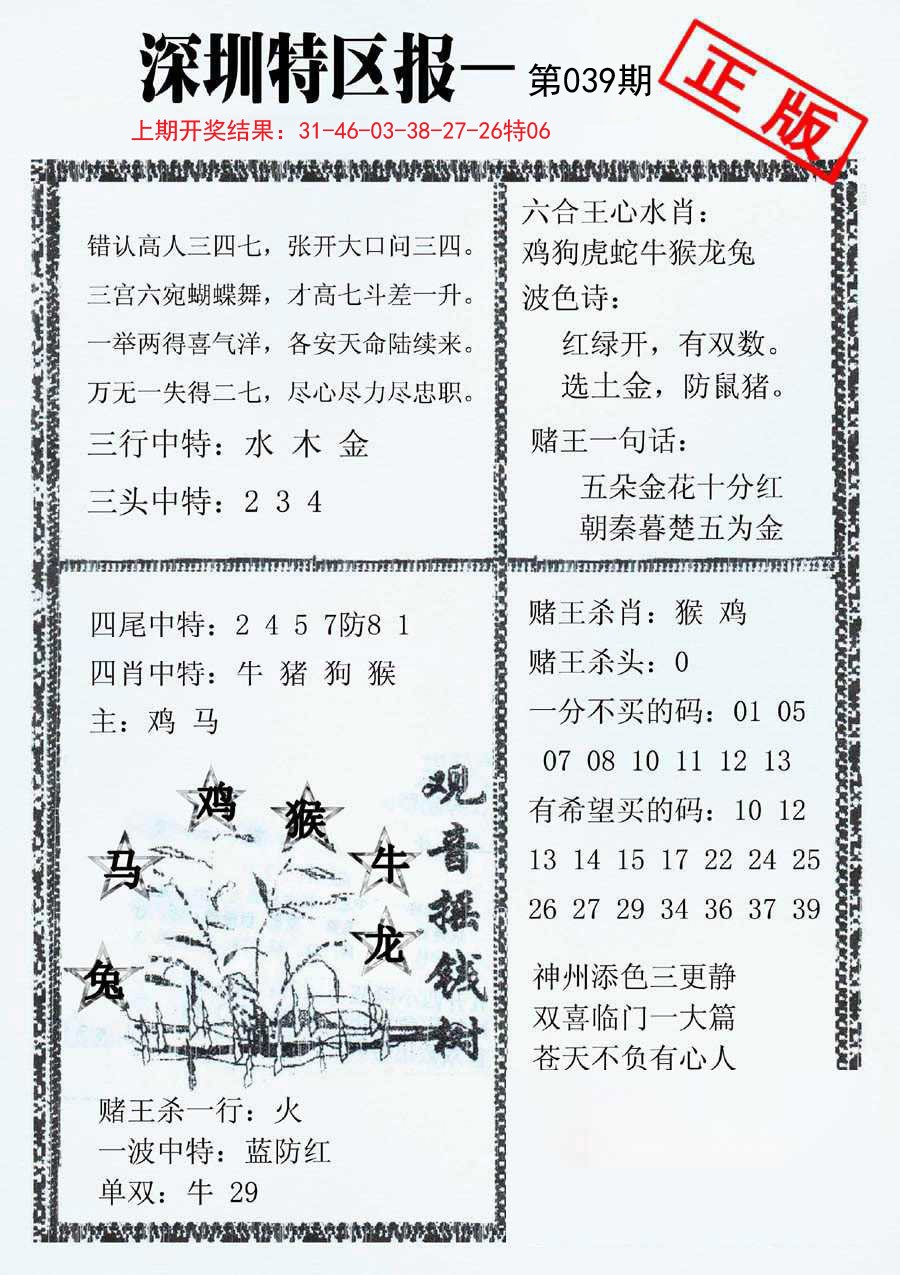 深圳特区报一 第039期
正版
上期开奖结果：31-46-03-38-27-26特06
错认高人三四七，张开大口问三四。
三宫六宛蝴蝶舞，才高七斗差一升。
一举两得喜气洋，各安天命陆续来。
万无一失得二七，尽心尽力尽忠职。
三行中特：水 木 金
三头中特：2 3 4
六合王心水肖：
鸡狗虎蛇牛猴龙兔
波色诗：
红绿开，有双数。
选土金，防鼠猪。
赌王一句话：
五朵金花十分红
朝秦暮楚五为金
四尾中特：2 4 5 7防8 1
四肖中特：牛 猪 狗 猴
主：鸡 马
鸡
猴
马
牛
龙
兔
观音摇钱树
赌王杀一行：火
一波中特：蓝防红
单双：牛 29
赌王杀肖：猴 鸡
赌王杀头：0
一分不买的码：01 05
07 08 10 11 12 13
有希望买的码：10 12
13 14 15 17 22 24 25
26 27 29 34 36 37 39
神州添色三更静
双喜临门一大篇
苍天不负有心人